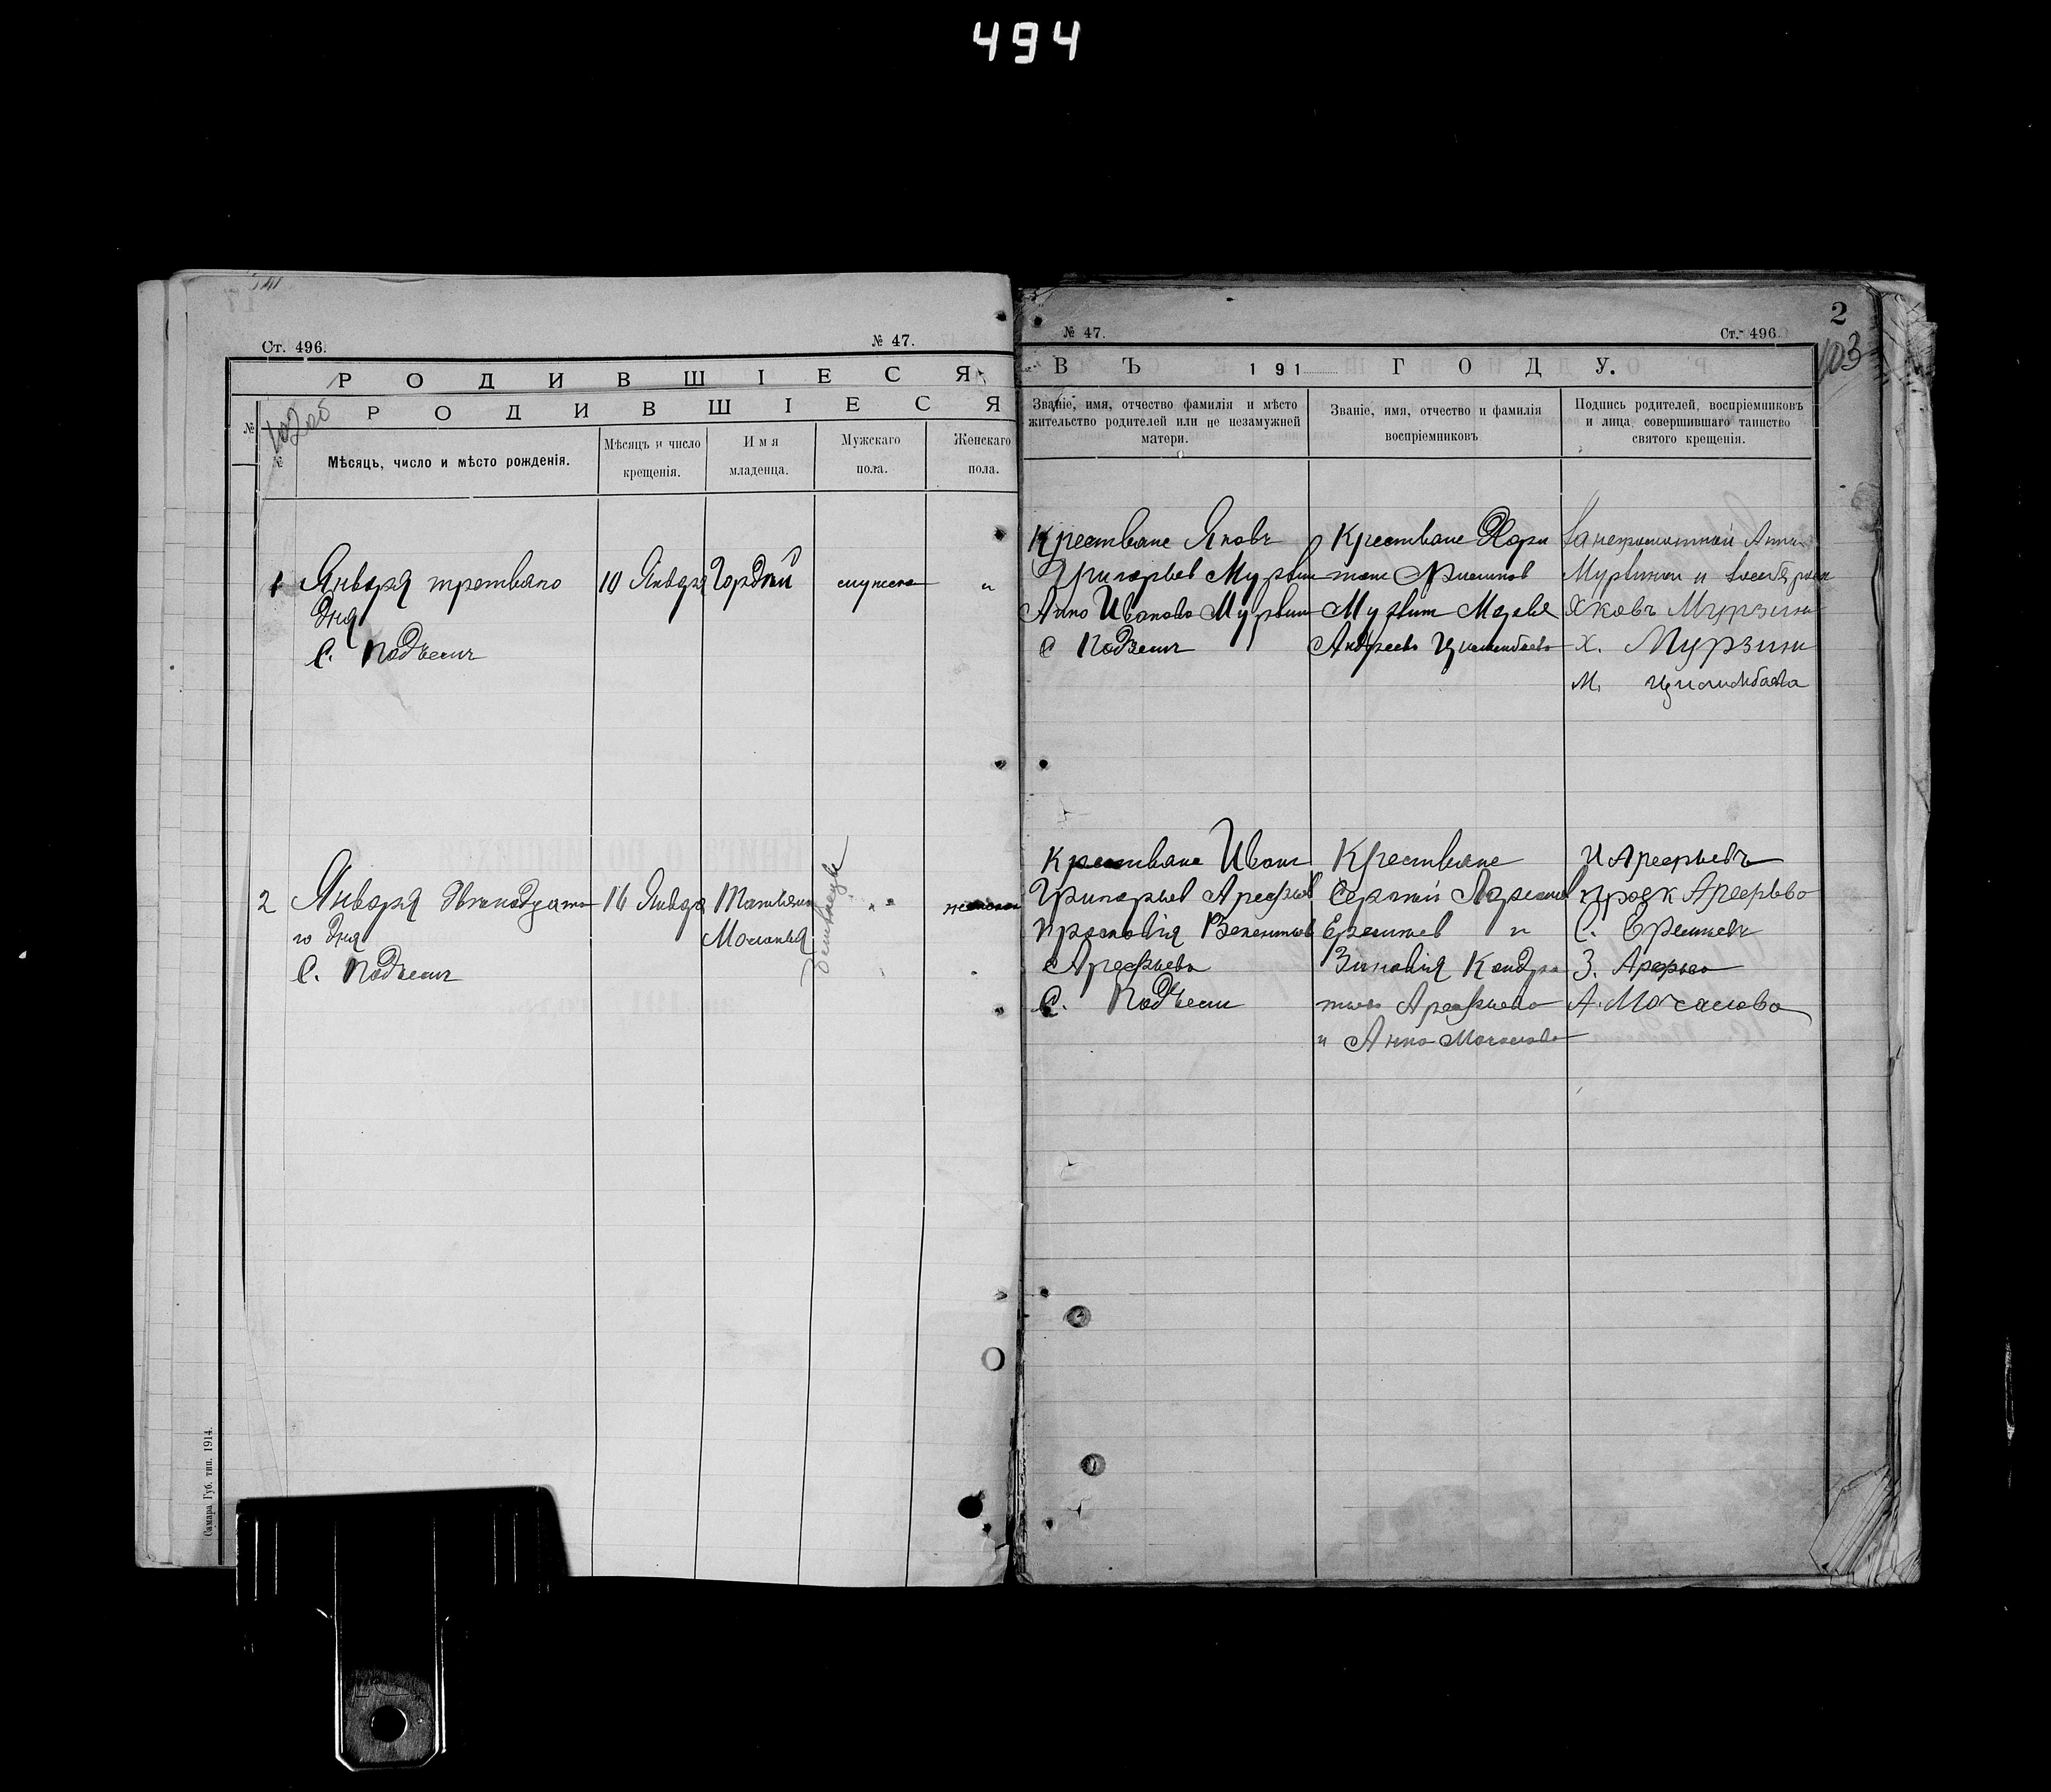 494
Ст. 496.
№ 47.
РОДИВШІЕСЯ
РОДИВШІЕСЯ
№
№
Мѣсяцъ, число и мѣсто рожденія.
Мѣсяцъ и число
крещенія.
Имя
младенца.
Мужскаго
пола.
Женскаго
пола.
1
Января третьяго
дня
С. Подъемъ
10 Января
Гордѣй
"
2
Января двенадцата
го дня
С. Подъемъ
16 Января
Татьяна
женска
Самара Губ. тип. 1914.
2
103
№ 47.
Ст. 496.
ВЪ 191 ГОДУ.
Званіе, имя, отчество фамилія и мѣсто
жительство родителей или не незамужней
матери.
Званіе, имя, отчество и фамилія
воспріемниковъ
Подпись родителей, воспріемниковъ
и лица, совершившаго таинство
святого крещенія.
Крестьяне Яковъ
Григорьев Мурзин
Анна Иванова Мурзин
С Подъемъ
Крестьяне Хари
Мурзин
Андреева
Мурзиной и
Яковъ Мурзин
Х. Мурзин
М.
Крестьяне Иванъ
Григорьев Арефьев
Арефьева
С. Подъем
Крестьяне
Сергей
Еремеев и
Зиновія Кондра
тьева Арефьева
и Анна Мочалова
И Арефьевъ
Арефьева
С. Еремеевъ
З. Арефьева
А. Мочалова